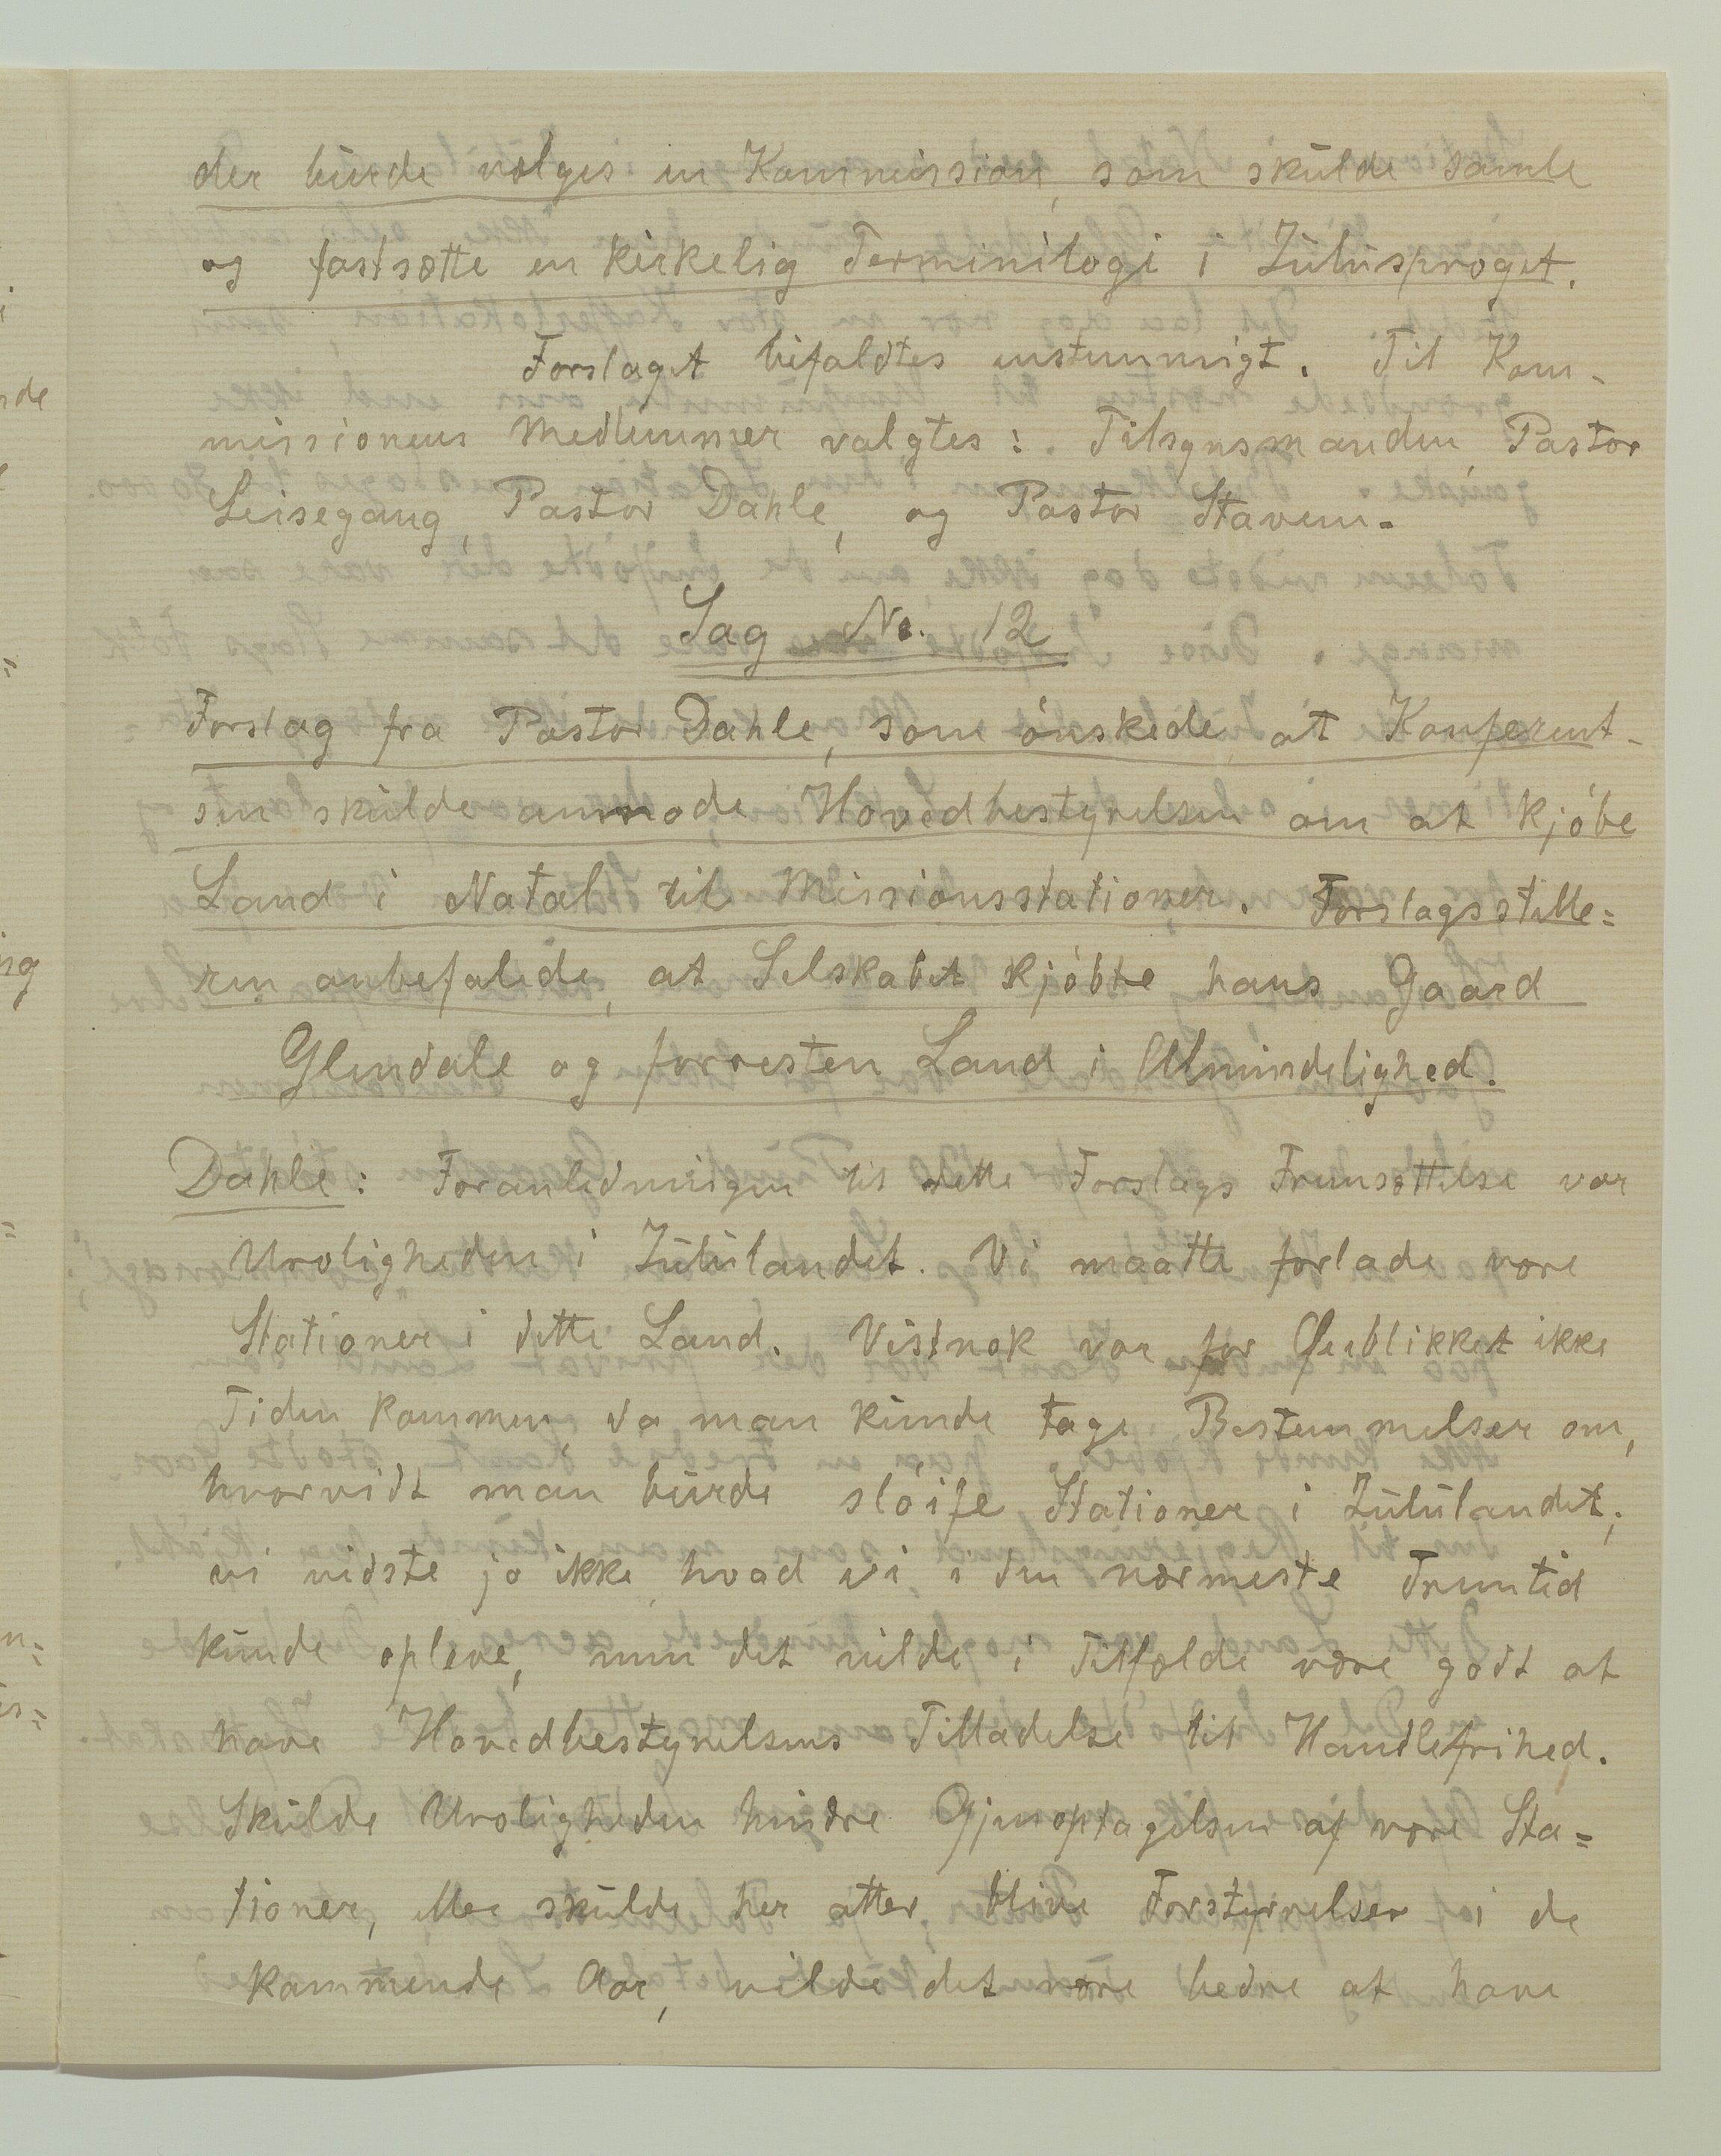 der burde vælges en Kommission, som skulde samle
og fastsætte en kirkelig Terminilogi i Zulusproget.
Forslaget bifaldtes enstemmigt. Til Kom-
missionens Medlemmer valgtes: Tilsynsmanden, Pastor
Leisegang, Pastor Dahle, og Pastor Stavem.
Sag No. 12
Forslag fra Pastor Dahle, som ønskede, at Konferent-
sen skulde anmode Hovedbestyrelsen om at kjøbe
Land i Natal til Missionsstationer. Forslagsstille=
ren anbefalede, at Selskabet kjøbte hans Gaard
Glendale og forresten Land i Almindelighed.
Dahle: Foranledningen til dette Forslags Fremsættelse var
Uroligheden i Zululandet. Vi maatte forlade vore
Stationer i dette Land. Vistnok var for Øieblikket ikke
Tiden kommen, da man kunde tage Bestemmelser om,
hvorvidt man burde sløife Stationer i Zululandet;
vi vidste jo ikke, hvad vi i den nærmeste Fremtid
kunde opleve, men det vilde i Tilfælde være godt at
have Hovedbestyrelsens Tilladelse til Handlefrihed.
Skulde Uroligheden hindre Gjenoptagelsen af vore Sta=
tioner, eller skulde her atter blive Forstyrrelser i de
kommende Aar, vilde det være bedre at have